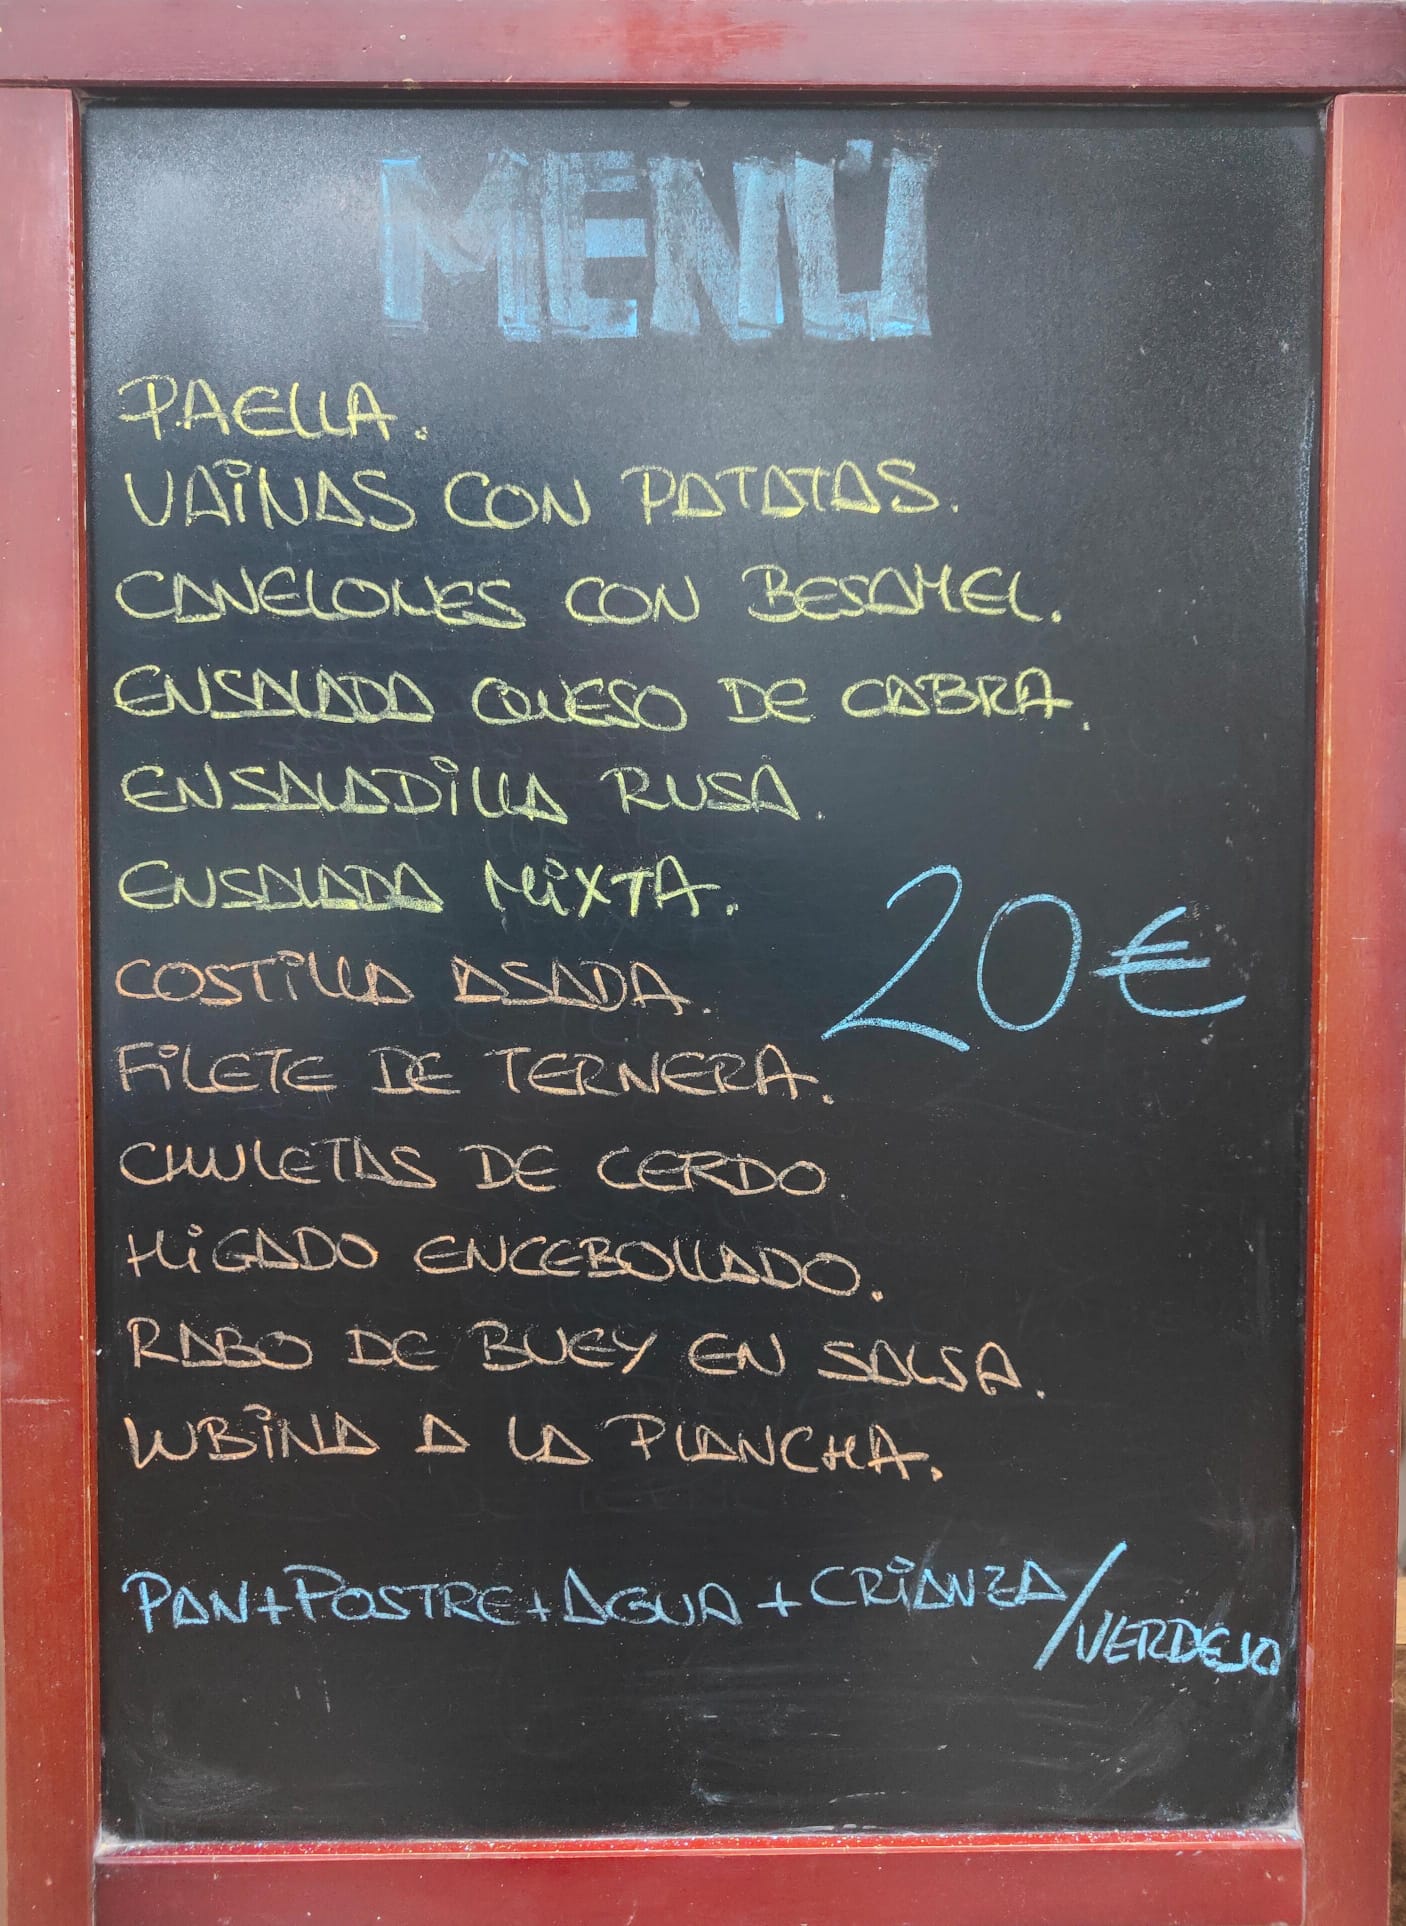 MENÚ
PAELLA.
VAiNAS CON PATATAS.
CANELONES CON BESAMEL.
ENSALADA QUESO DE CABRA.
ENSALADiLLA RUSA.
ENSALADA MiXTA.
20€
COSTiLLA ASADA.
FiLETE DE TERNERA.
CHULETAS DE CERDO.
HiGADO ENCEBOLLADO.
RABO DE BUEY EN SALSA.
LUBiNA A LA PLANCHA.
PAN+POSTRE+AGUA+CRiANZA/VERDEJO